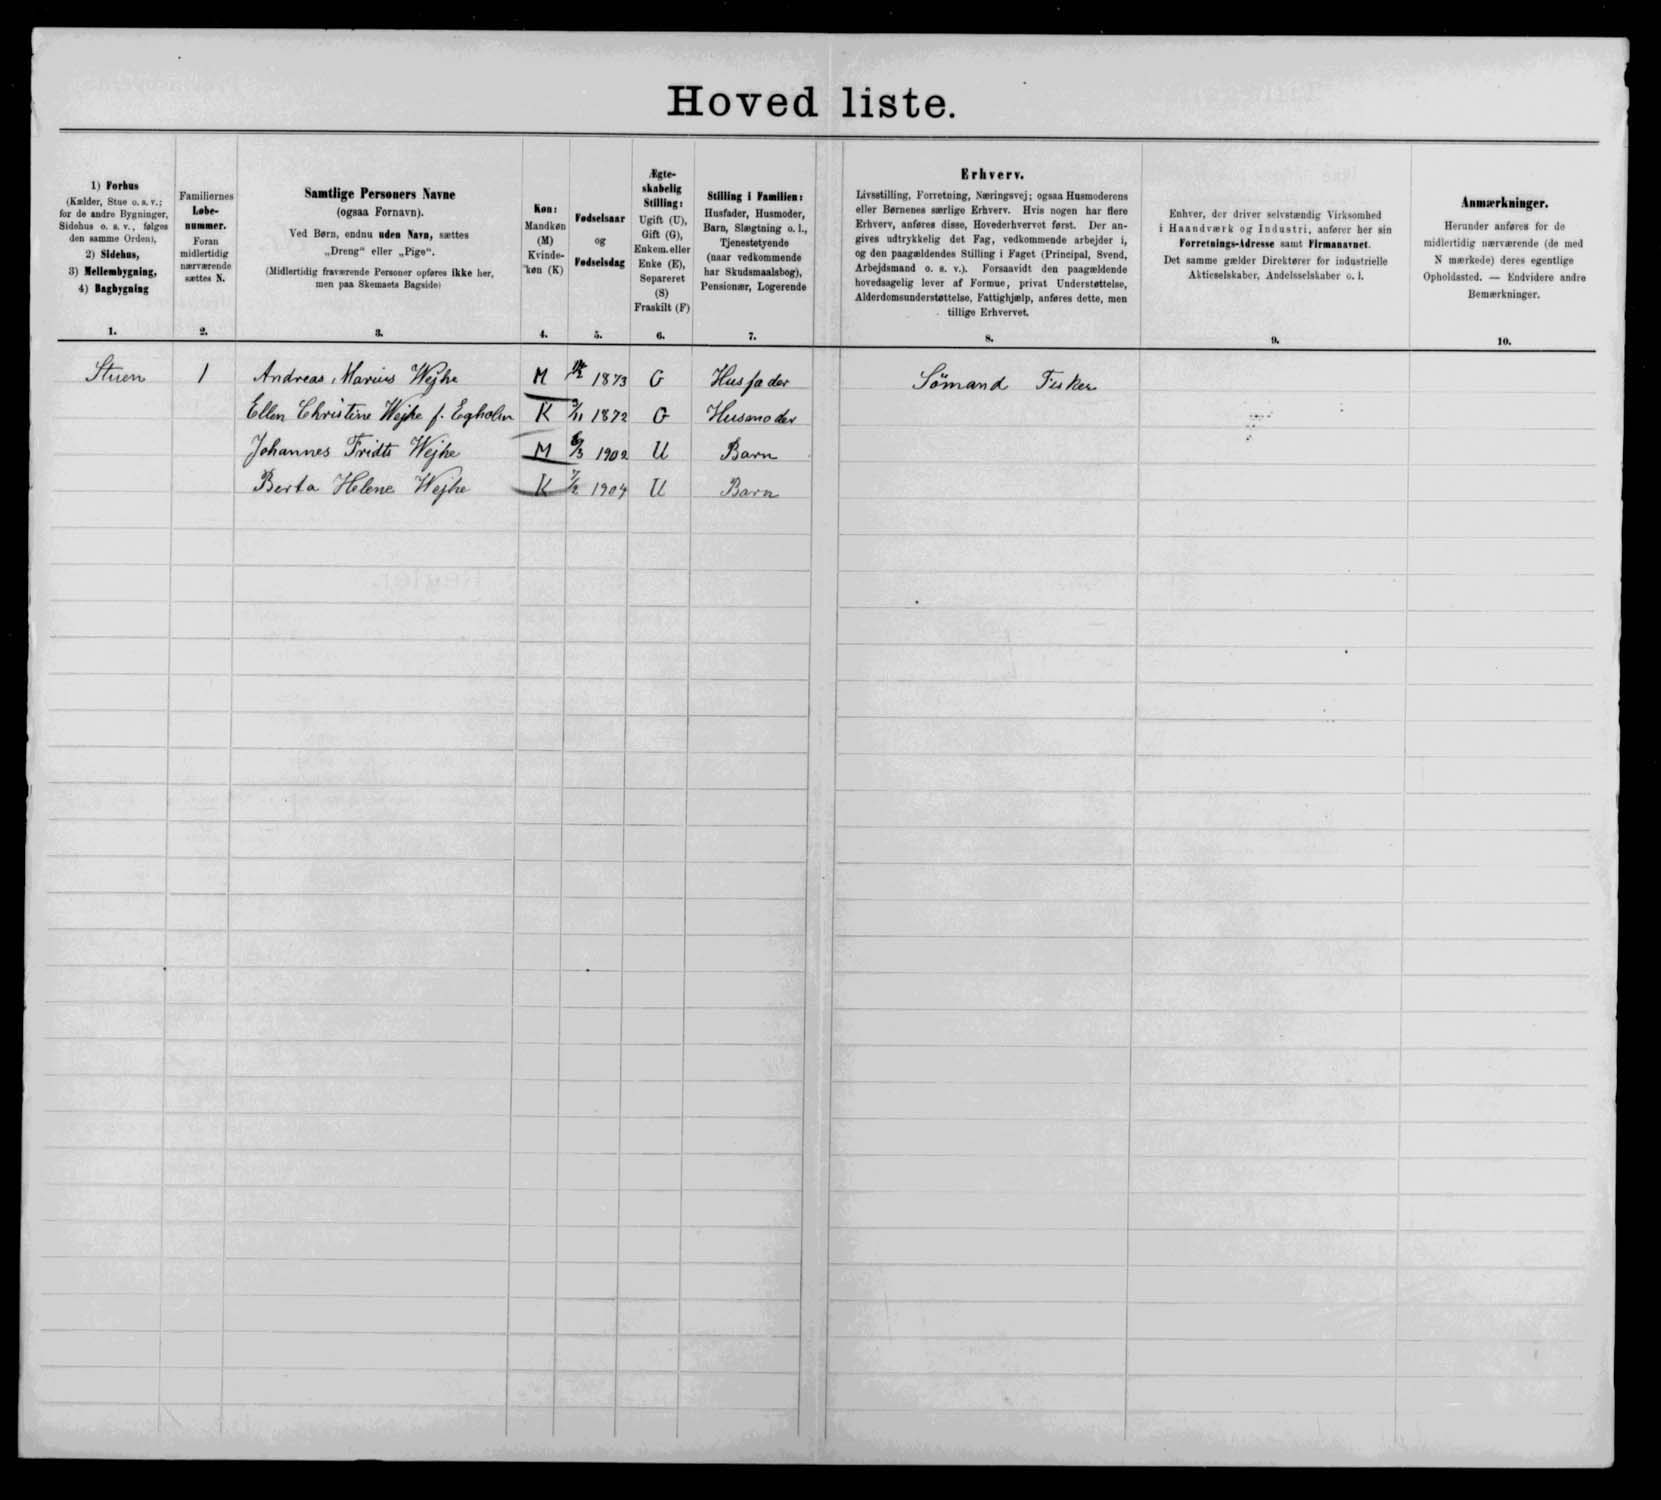 Hovedliste.
1) Forhus
(Kælder, Stue o. s. v.;
for de andre Bygninger,
Sidehus o. s. v., følges
den samme Orden),
2) Sidehus,
3) Mellembygning,
4) Bagbygning
1.
Familiernes
Løbe-
nummer.
Foran
midlertidig
nærværende
sættes N.
2.
Samtlige Personers Navne
(ogsaa Fornavn).
Ved Børn, endnu uden Navn, sættes
„Dreng“ eller „Pige“.
(Midlertidig fraværende Personer opføres ikke her,
men paa Skemaets Bagside)
3.
Køn:
Mandkøn
(M)
Kvinde-
køn (K)
4.
Fødselsaar
og
Fødselsdag
5.
Ægte-
skabelig
Stilling:
Ugift (U),
Gift (G),
Enkem. eller
Enke (E),
Separeret
(S)
Fraskilt (F)
6.
Stilling i Familien:
Husfader, Husmoder,
Barn, Slægtning o. l.,
Tjenestetyende
(naar vedkommende
har Skudsmaalsbog),
Pensionær, Logerende
7.
Erhverv.
Livsstilling, Forretning, Næringsvej; ogsaa Husmoderens
eller Børnenes særlige Erhverv. Hvis nogen har flere
Erhverv, anføres disse, Hovederhvervet først. Der an-
gives udtrykkelig det Fag, vedkommende arbejder i,
og den paagældendes Stilling i Faget (Principal, Svend,
Arbejdsmand o. s. v.). Forsaavidt den paagældende
hovedsagelig lever af Formue, privat Understøttelse,
Alderdomsunderstøttelse, Fattighjælp, anføres dette, men
tillige Erhvervet.
8.
Enhver, der driver selvstændig Virksomhed
i Haandværk og Industri, anfører her sin
Forretnings-Adresse samt Firmanavnet.
Det samme gælder Direktører for industrielle
Aktieselskaber, Andelsselskaber o. l.
9.
Anmærkninger.
Herunder anføres for de
midlertidig nærværende (de med
N mærkede) deres egentlige
Opholdssted. — Endvidere andre
Bemærkninger.
10.
Stuen 1 Andreas Marius Wejhe M 1873 G Husfader Sömand Fisker
Ellen Christine Wejhe f. Egholm K 9/11 1872 G Husmoder
Johannes Fridts Wejhe M 6/3 1902 U Barn
Berta Helene Wejhe K 7/2 1904 U Barn